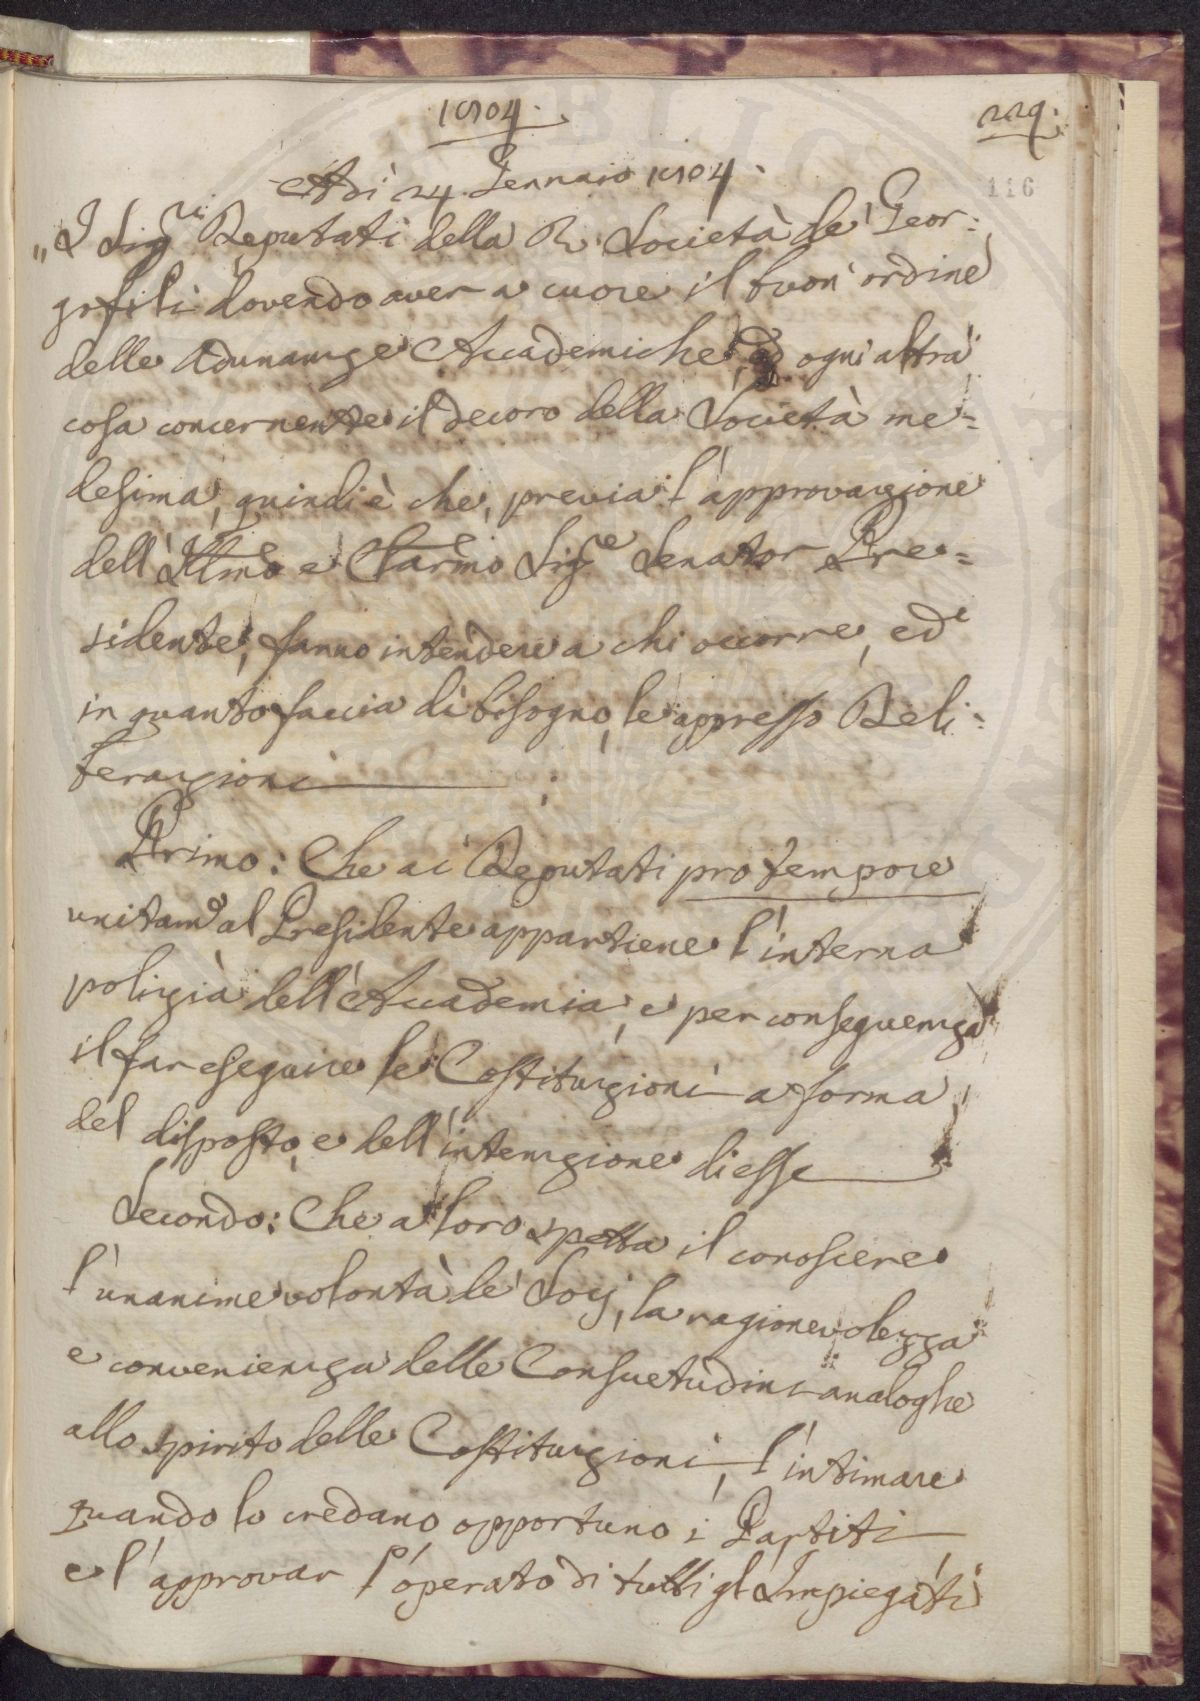 1804.
229.
116
Adì 24. Gennaio 1804.
„ I Sig.ri Deputati della R. Società de' Geor=
gofili dovendo aver a cuore il buon'ordine
delle Adunanze Accademiche ogni altra
cosa concernente il decoro della Società me=
desima, quindi è che, previa l'approvazione
dell'Illmo e Clarmo Sig.e Senator Pre=
sidente, fanno intendere a chi occorre, ed
in quanto faccia di bisogno, le appresso Deli=
berazioni
Primo: Che ai Deputati pro tempore
unitam.e al Presidente appartiene l'interna
polizia dell'Accademia, e per conseguenza
il far eseguire le Costituzioni a forma
del disposto, e dell'intenzione di esse
Secondo: Che a loro spetta il conoscere
l'unanime volontà de' Socj, la ragionevolezza
e convenienza delle Consuetudini analoghe
allo spirito delle Costituzioni, l'intimare
quando lo credano opportuno i Partiti
e l'approvar l'operato di tutti gl'Impiegati